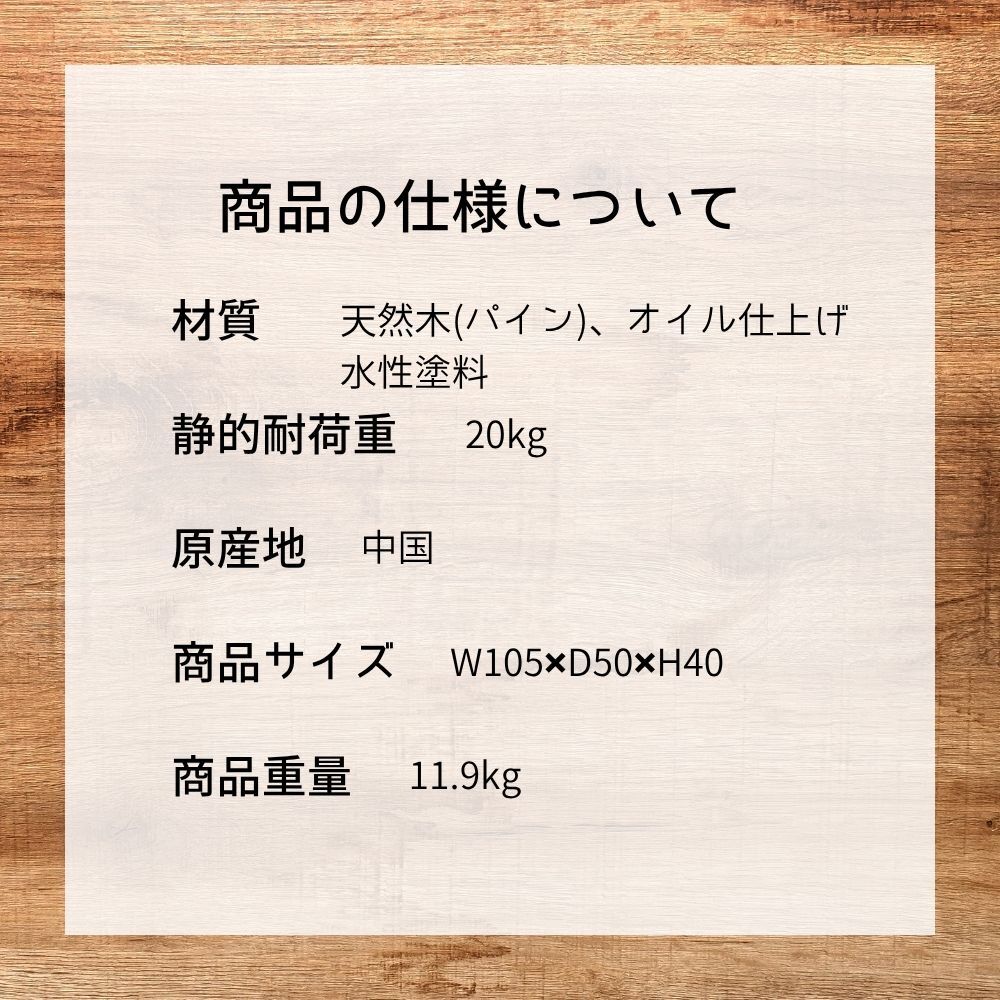 商品の仕様について
材質 天然木(パイン)、オイル仕上げ
水性塗料
静的耐荷重 20kg
原産地 中国
商品サイズ W105×D50×H40
商品重量 11.9kg